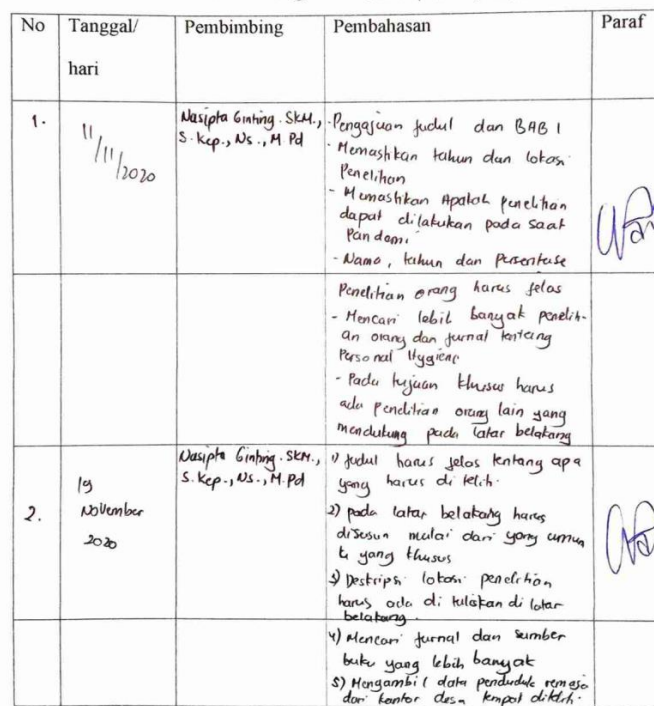 No Tanggal/ Pembimbing Pembahasan Paraf
hari
1. 11/11/2020 Nasipta Ginting. SKM., - Pengajuan judul dan BAB I
S. Kep., Ns., M Pd - Memastikan tahun dan lokasi
Penelitian
- Memastikan Apakah penelitian
dapat dilakukan pada saat
Pandemi
- Nama, tahun dan Persentase
Penelitian orang harus jelas
- Mencari lebih banyak penelit-
an orang dan jurnal tentang
Personal Hygiene
- Pada tujuan khusus harus
ada penelitian orang lain yang
mendukung pada latar belakang
2. 19 November 2020 Nasipta Ginting. SKM., 1) Judul harus jelas tentang apa
S. Kep., Ns., M. Pd yang harus di teliti.
2) pada latar belakang harus
disusun mulai dari yang umum
ke yang khusus
3) Deskripsi lokasi penelitian
harus ada di tuliskan di latar
belakang.
4) Mencari jurnal dan sumber
buku yang lebih banyak
5) Mengambil data penduduk remaja
dari kantor desa tempat diteliti.